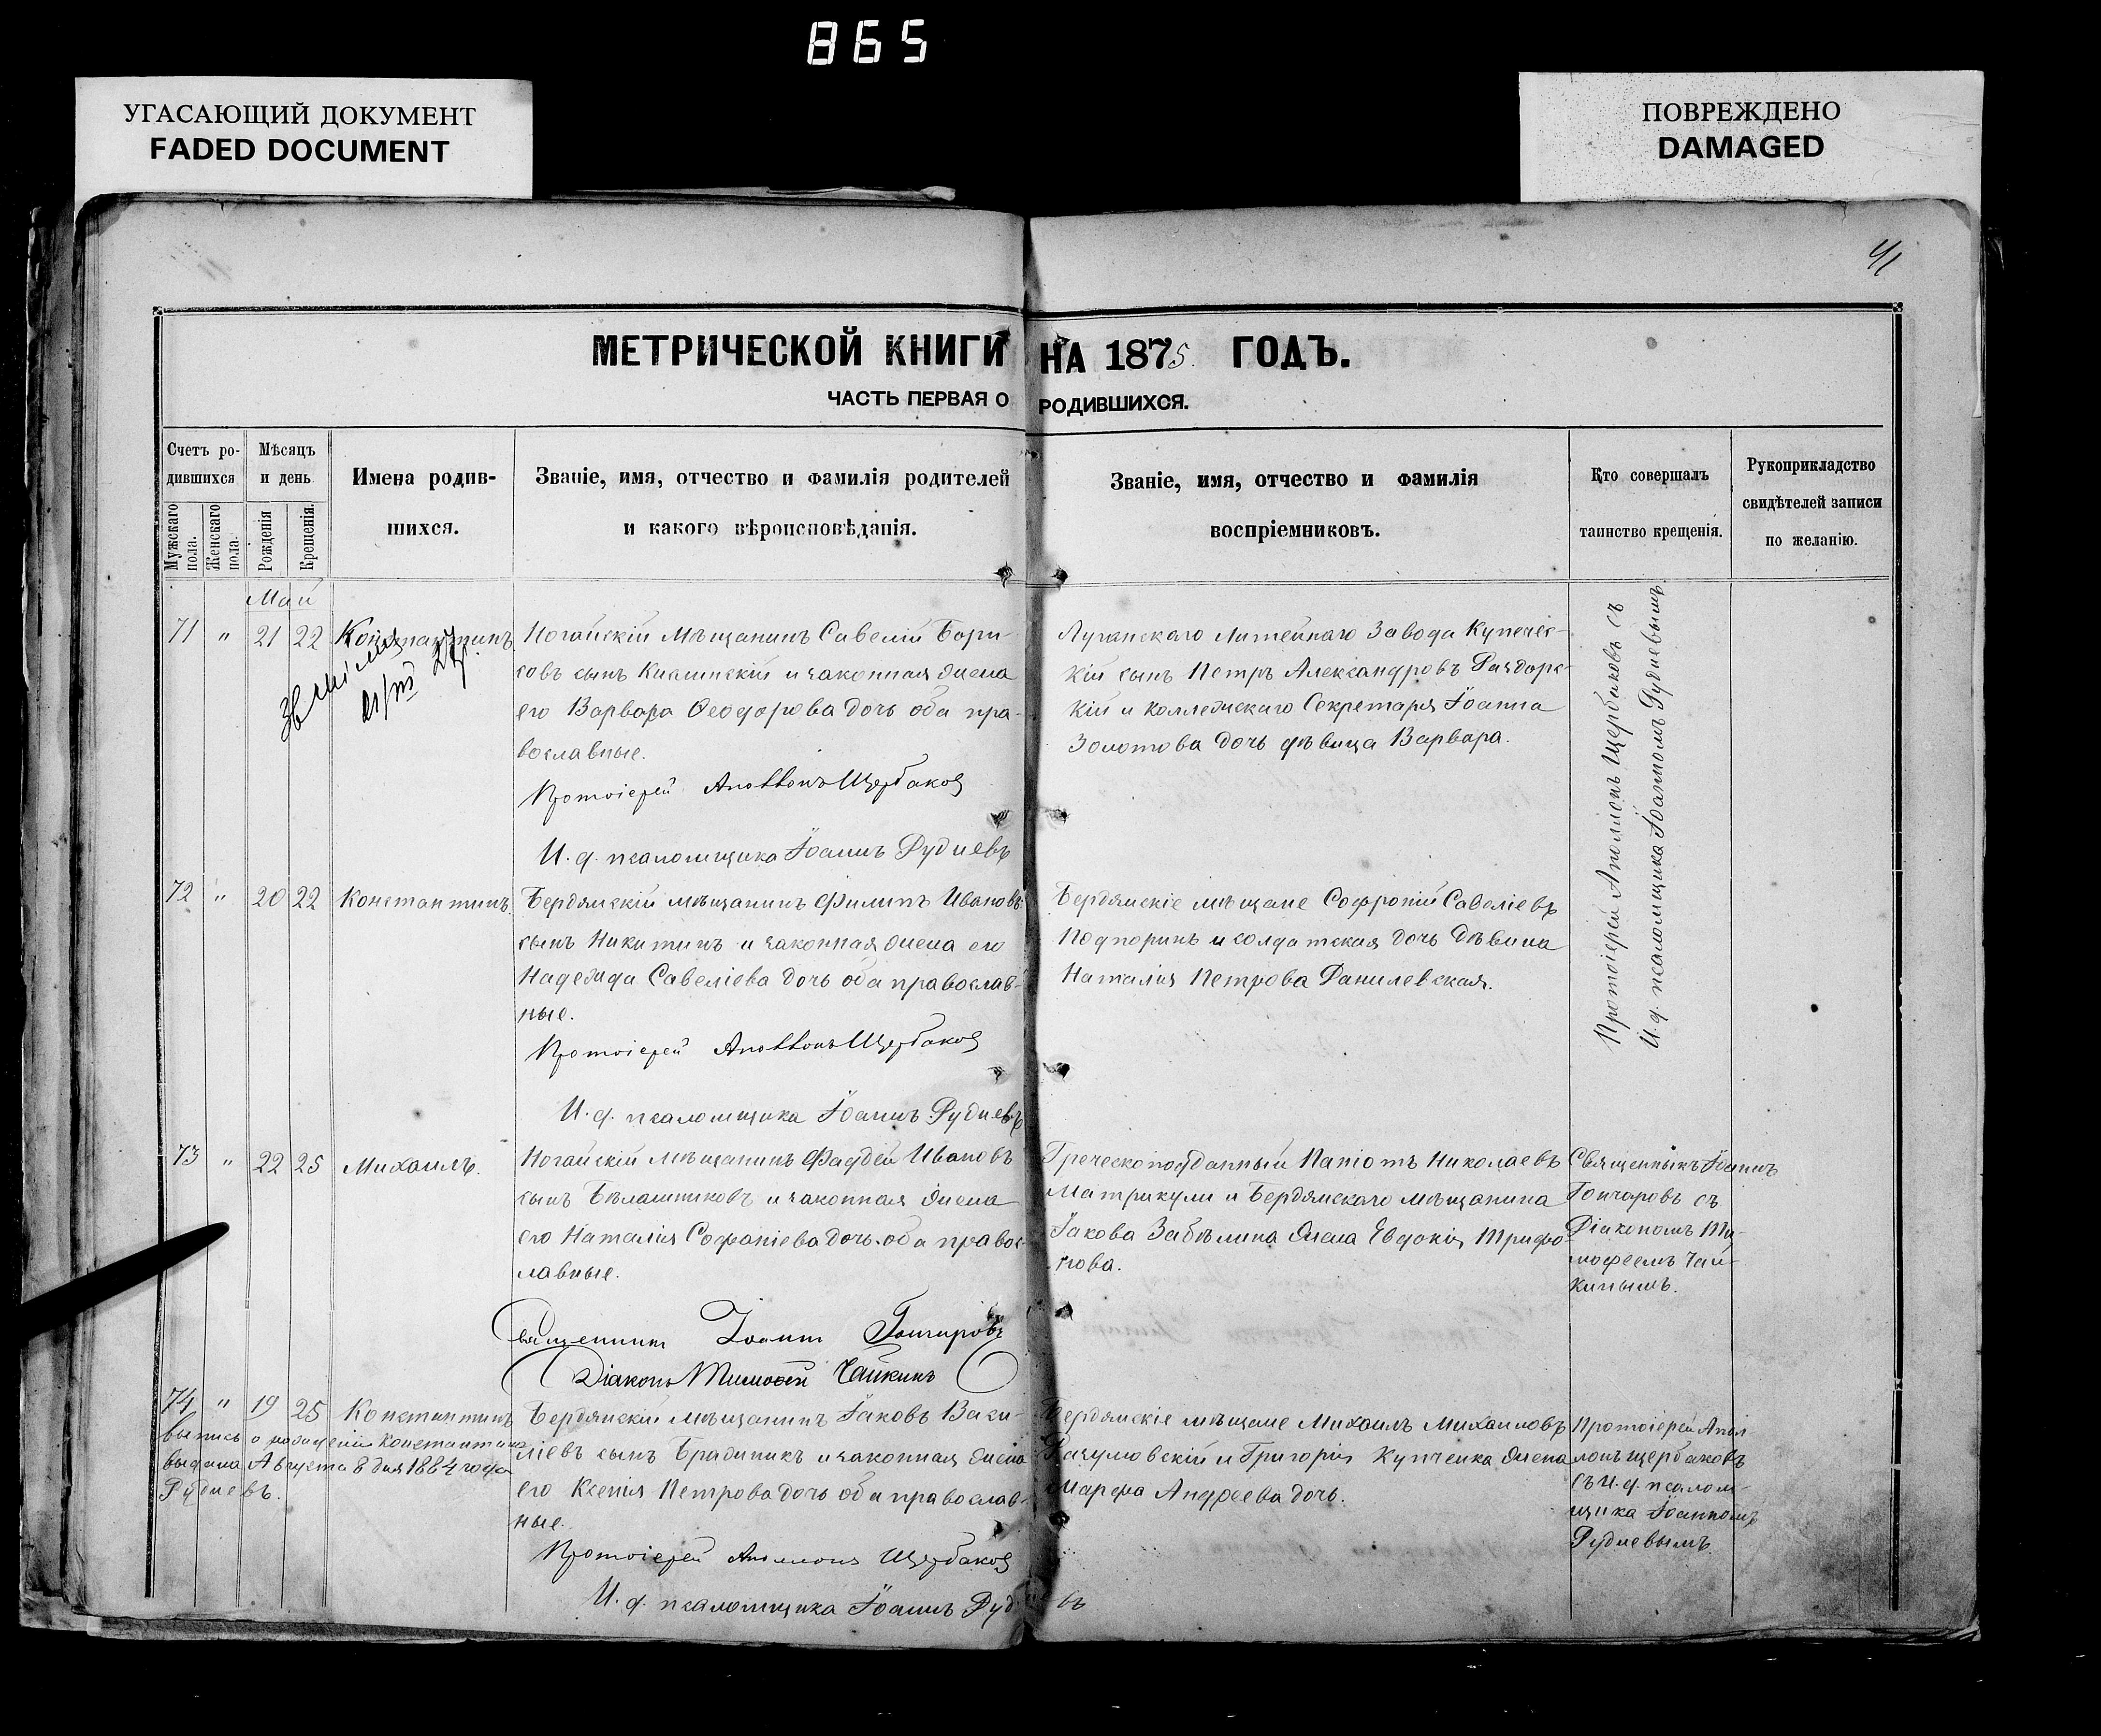 865
УГАСАЮЩИЙ ДОКУМЕНТ
FADED DOCUMENT
ПОВРЕЖДЕНО
DAMAGED
41
МЕТРИЧЕСКОЙ КНИГИ НА 1875 ГОДЪ.
ЧАСТЬ ПЕРВАЯ О РОДИВШИХСЯ.
Счетъ ро-
дившихся
Мужскаго пола.
Женскаго пола.
Мѣсяцъ
и день
Рожденія
Крещенія.
Имена родив-
шихся.
Званіе, имя, отчество и фамилія родителей
и какого вѣроисповѣданія.
Званіе, имя, отчество и фамилія
воспріемниковъ.
Кто совершалъ
таинство крещенія.
Рукоприкладство
свидѣтелей записи
по желанію.
Май
71 " 21 22 Константинъ
Ногайскій Мѣщанинъ Савелій Бори-
совъ сынъ и законная жена
его Варвара Ѳеодорова дочь оба пра-
вославные.
Протоіерей Аполлонъ Щербаковъ
И. д. псаломщика Іоаннъ Рудневъ
Луганскаго Литейнаго Завода Купечес-
кій сынъ Петръ Александровъ Раздорс-
кій и Коллежскаго Секретаря Іоанна
Золотова дочь дѣвица Варвара.
Протоіерей Аполлонъ Щербаковъ съ
И. д. псаломщика Іоанномъ Рудневымъ
72 " 20 22 Константинъ.
Бердянскій мѣщанинъ Филипъ Ивановъ
сынъ Никитинъ и законная жена его
Надежда Савеліева дочь оба православ-
ные.
Протоіерей Аполлонъ Щербаковъ
И. д. псаломщика Іоаннъ Рудневъ
Бердянскіе мѣщане Софроній Савеліевъ
Подпоринъ и солдатская дочь Дѣвица
Наталія Петрова Данилевская.
73 " 22 25 Михаилъ.
Ногайскій мѣщанинъ Фаддей Ивановъ
сынъ Бѣлашниковъ и законная жена
его Наталія Софоніева дочь оба правос-
лавные.
Священникъ Іоаннъ Гончаровъ
Діаконъ Тимоѳей Чайкинъ
Греческоподданный Паніотъ Николаевъ
Матрикули и Бердянскаго мѣщанина
Іакова Забѣлина жена Евдокія Трифо-
нова.
Священникъ Іоаннъ
Гончаровъ съ
Діакономъ Ти-
мофеемъ Чай-
кинымъ.
74 " 19 25 Константинъ
выпись о рожденіи Константина
выдана Августа 8 дня 1884 года
Рудневъ.
Бердянскій мѣщанинъ Іаковъ Васи-
ліевъ сынъ Бражникъ и законная жена
его Ксенія Петрова дочь оба православ-
ные.
Протоіерей Аполлонъ Щербаковъ
И. д. псаломщика Іоаннъ Рудневъ
Бердянскіе мѣщане Михаилъ Михаиловъ
и Григорія Купченка жена
Марфа Андреева дочь.
Протоіерей Апол
лонъ Щербаковъ
съ И. д. псалом-
щика Іоанномъ
Рудневымъ.